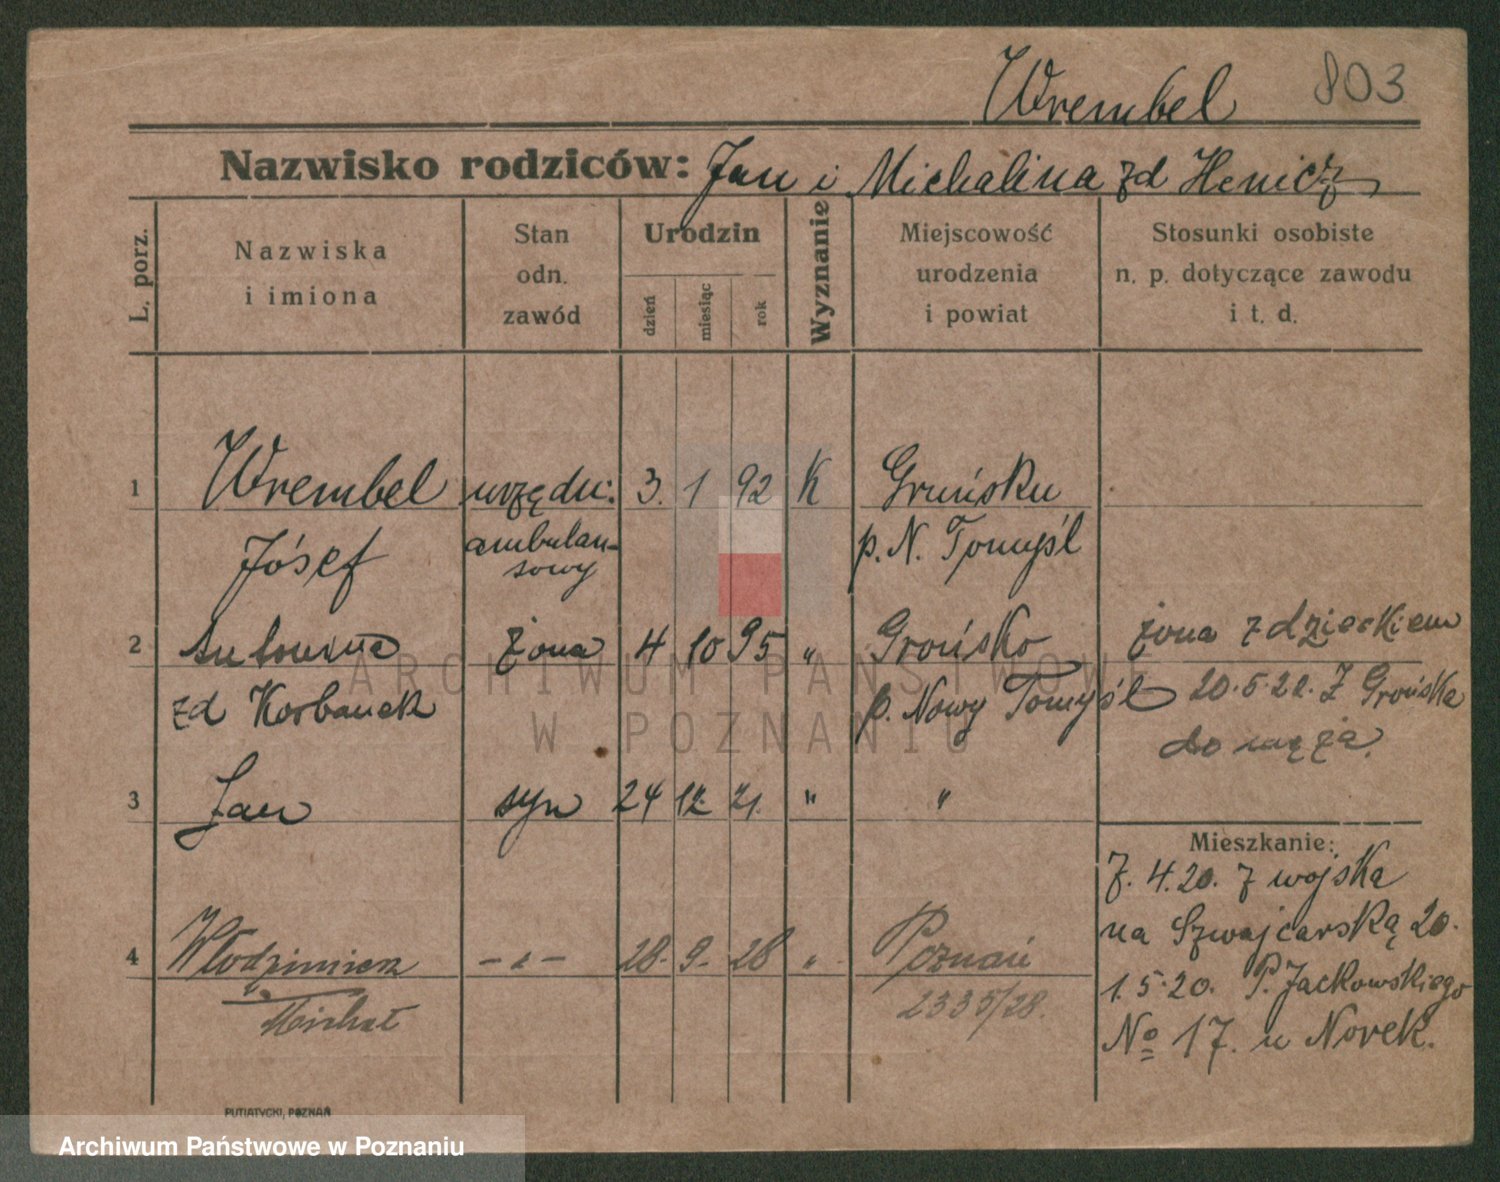 Wrembel 803
Nazwisko rodziców: Jan i Michalina zd Henicz
L. porz.
Nazwiska
i imiona
Stan
odn.
zawód
Urodzin
dzień
miesiąc
rok
Wyznanie
Miejscowość
urodzenia
i powiat
Stosunki osobiste
n. p. dotyczące zawodu
i t. d.
1 Wrembel urzędn: 3. 1 92 K Gruńsku
Józef ambulan- p. N. Tomyśl
sowy
2 Antonina żona 4 10 95 " Grońsko żona z dzieckiem
zd Korbanek p. Nowy Tomyśl 20.5.22. z Grońska
do męża.
3 Jan syn 24 12. 21. " "
Mieszkanie:
7. 4.20. z wojska
na Szwajcarską 20.
4 Włodzimierz - " - 28. 9. 28 " Poznań
1.5.20. P. Jackowskiego
Michał 2335/28.
No 17. u Norek.
PUTIATYCKI, POZNAŃ
ARCHIWUM PAŃSTWOWE
W POZNANIU
Archiwum Państwowe w Poznaniu